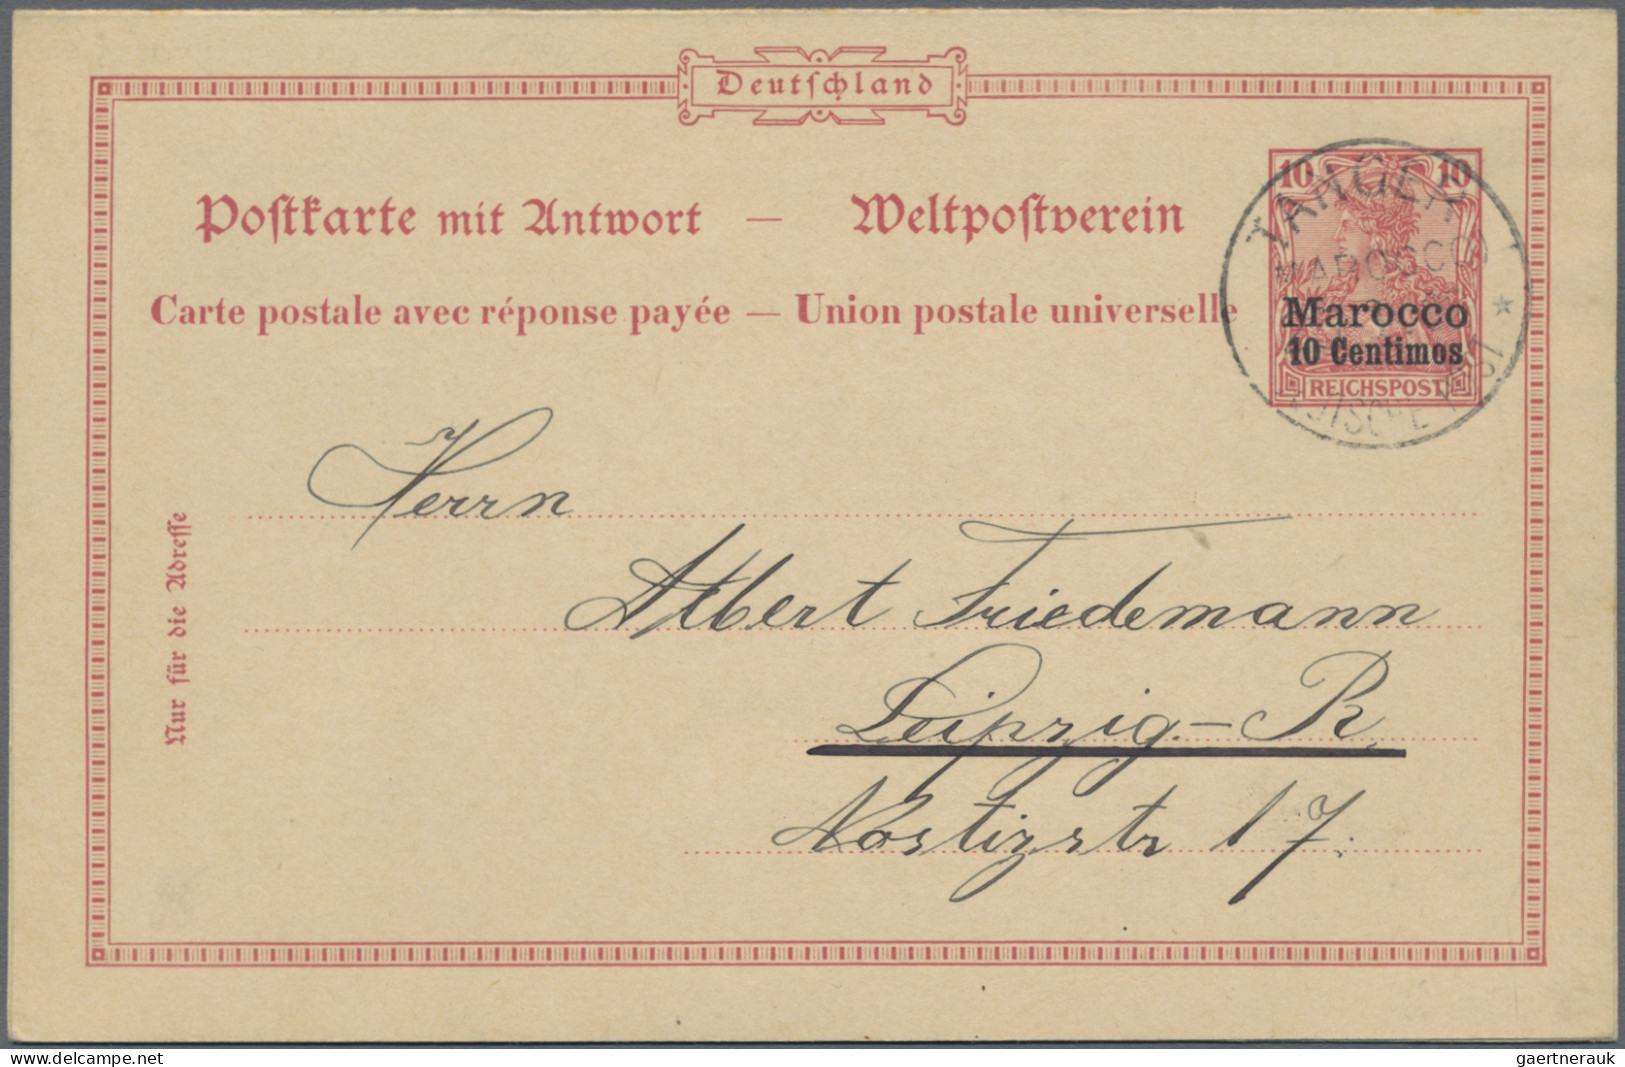 Deutschland
10 10
Postkarte mit Antwort — Weltpostverein
Carte postale avec réponse payée — Union postale universelle
TANGER
MAROCCO
Marocco
10 Centimos
REICHSPOST
Nur für die Adresse
Herrn
Albert Friedemann
Leipzig-R.
Nostizstr 17.
delcampe.net
gaertnerauk